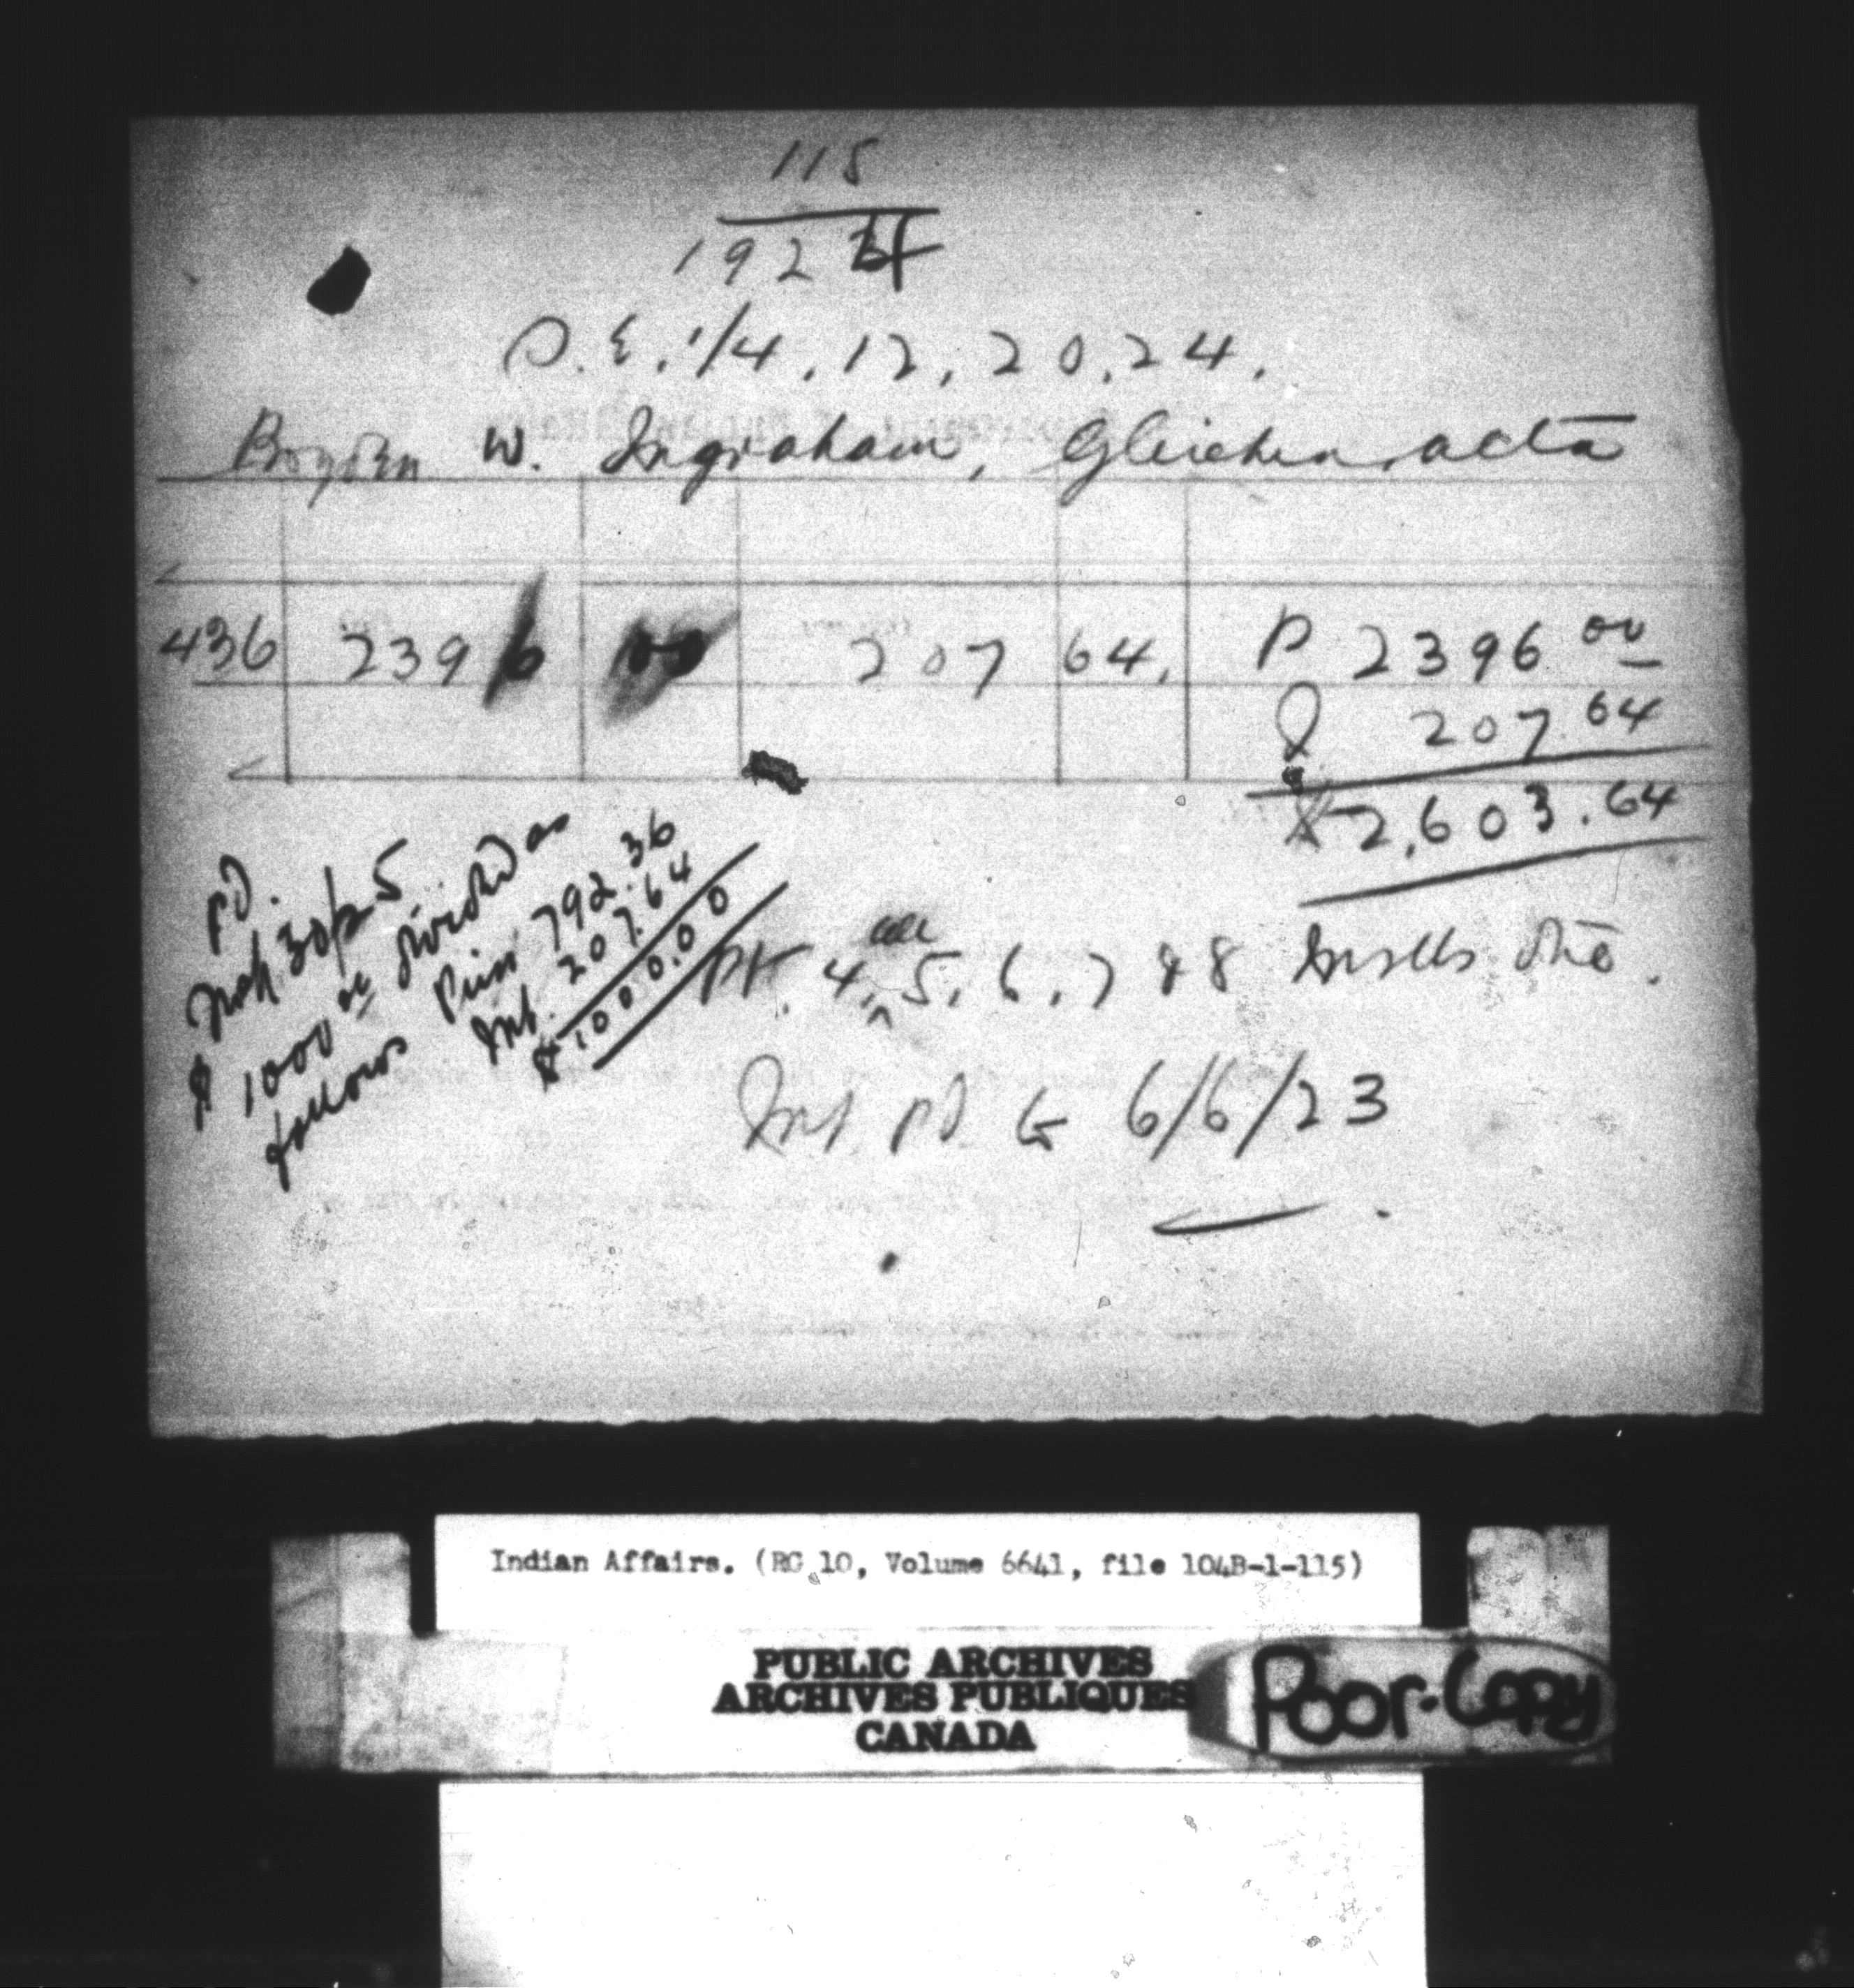 115
1924
S.E. 1/4, 12, 20, 24.
Boyden W. Ingraham, Gleichen, alta
436 2396 00 207 64, P 2396 00
I 207.64
$2,603.64
pd.
Mch 30/25
$1000 00 divided as
follows Prin 792.36
Int. 207.64
$1000.00
pt. 4, all 5, 6, 7 & 8 Instls due.
Int. pd to 6/6/23
Indian Affairs. (RG 10, Volume 6641, file 104B-1-115)
PUBLIC ARCHIVES
ARCHIVES PUBLIQUES
CANADA
Poor-Copy